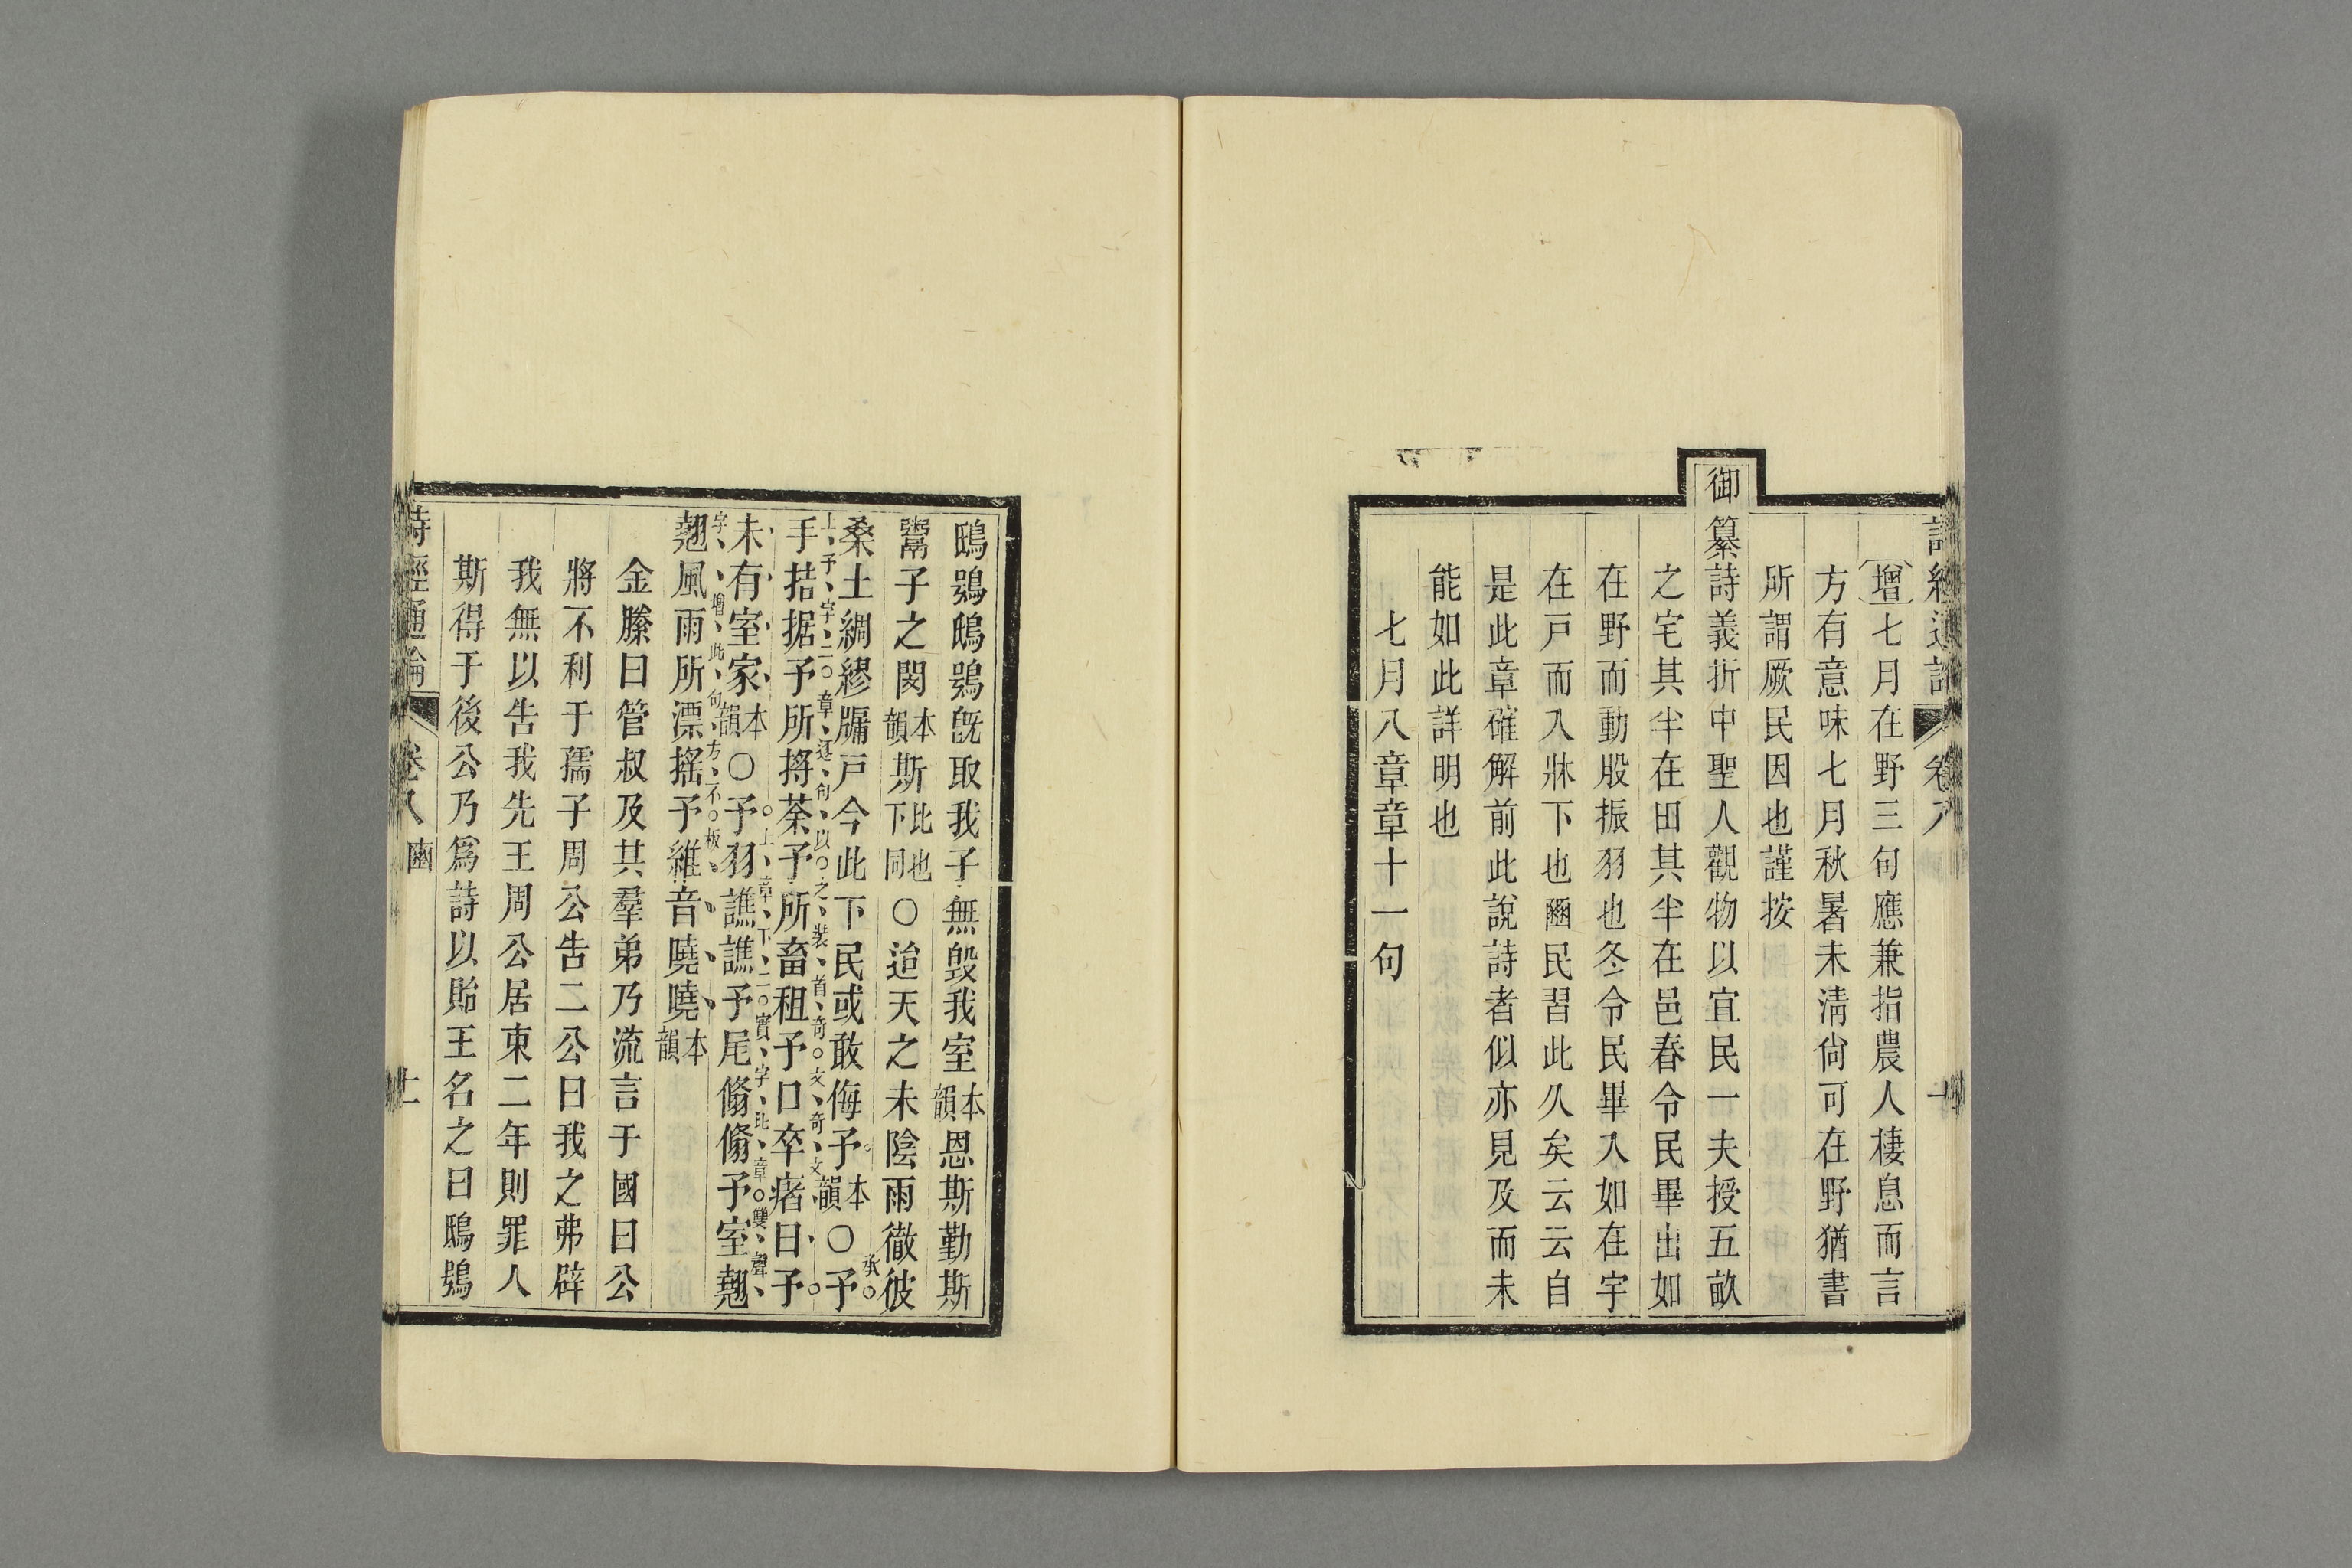 詩經通論 卷八
〔增〕七月在野三句應兼指農人棲息而言
方有意味七月秋暑未清尙可在野猶書
所謂厥民因也謹按
御纂詩義折中聖人觀物以宜民一夫授五畝
之宅其半在田其半在邑春令民畢出如
在野而動股振羽也冬令民畢入如在宇
在戸而入牀下也豳民習此久矣云云自
是此章確解前此說詩者似亦見及而未
能如此詳明也
七月八章章十一句
鴟鴞鴟鴞旣取我子無毀我室本韻恩斯勤斯
鬻子之閔本韻斯比也下同○迨天之未陰雨徹彼
桑土綢繆牖戸今此下民或敢侮予本韻○予
承上予字二章逐句以之裝首奇文奇文
手拮据予所捋荼予所畜租予口卒瘏曰予
未有室家本韻○予羽譙譙予尾翛翛予室翹
上章下二實字此章雙聲字增此句方不板
翹風雨所漂搖予維音嘵嘵本韻
金縢曰管叔及其羣弟乃流言于國曰公
將不利于孺子周公告二公曰我之弗辟
我無以告我先王周公居東二年則罪人
斯得于後公乃爲詩以貽王名之曰鴟鴞
詩經通論 卷八 豳 十一